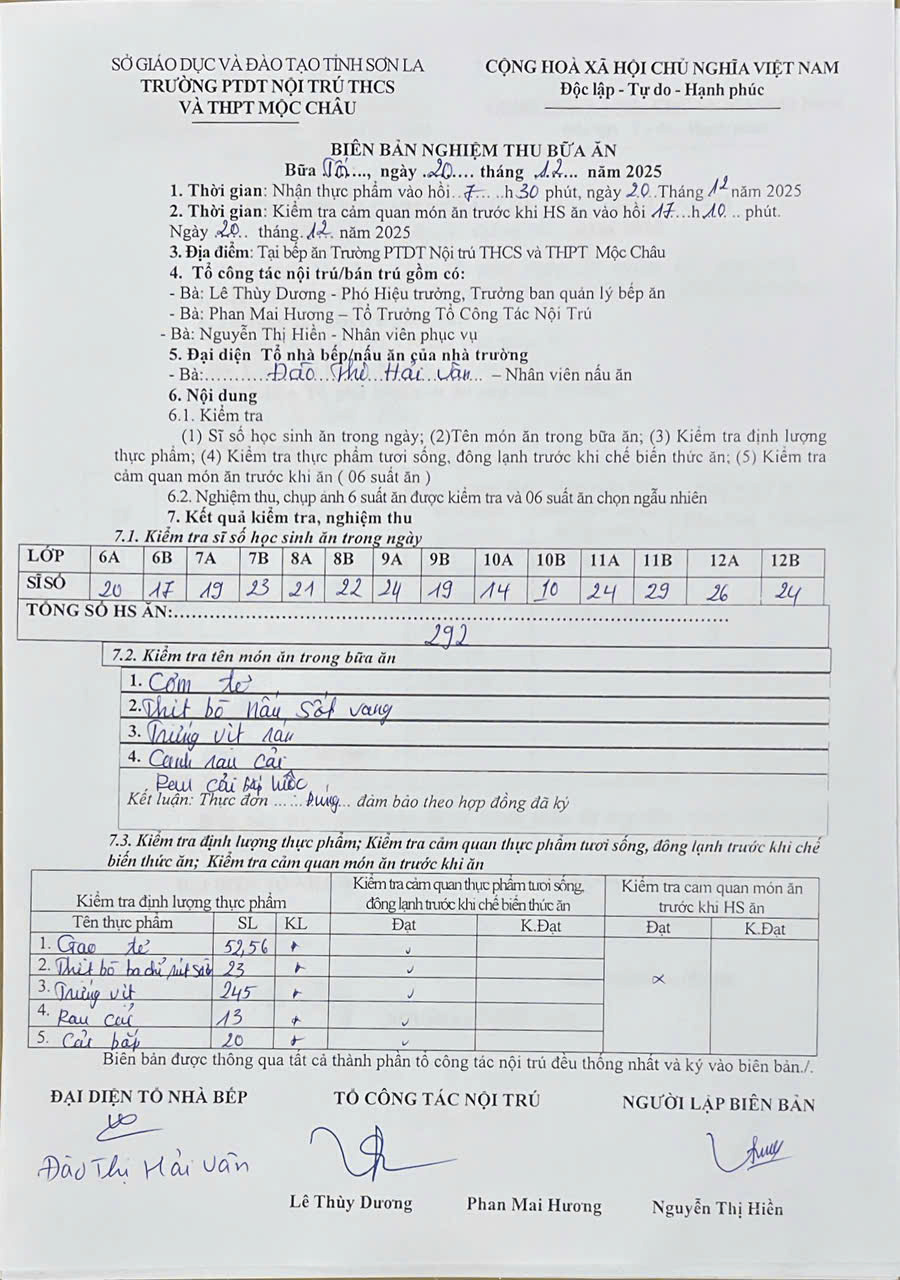 SỞ GIÁO DỤC VÀ ĐÀO TẠO TỈNH SƠN LA
TRƯỜNG PTDT NỘI TRÚ THCS
VÀ THPT MỘC CHÂU
CỘNG HOÀ XÃ HỘI CHỦ NGHĨA VIỆT NAM
Độc lập - Tự do - Hạnh phúc
BIÊN BẢN NGHIỆM THU BỮA ĂN
Bữa Tối..., ngày .20.... tháng .12... năm 2025
1. Thời gian: Nhận thực phẩm vào hồi..7.. ..h.30 phút, ngày 20..Tháng 12 năm 2025
2. Thời gian: Kiểm tra cảm quan món ăn trước khi HS ăn vào hồi 17...h.10. .. phút.
Ngày 20.. tháng.12. năm 2025
3. Địa điểm: Tại bếp ăn Trường PTDT Nội trú THCS và THPT Mộc Châu
4. Tổ công tác nội trú/bán trú gồm có:
- Bà: Lê Thùy Dương - Phó Hiệu trưởng, Trưởng ban quản lý bếp ăn
- Bà: Phan Mai Hương – Tổ Trưởng Tổ Công Tác Nội Trú
- Bà: Nguyễn Thị Hiền - Nhân viên phục vụ
5. Đại diện Tổ nhà bếp/nấu ăn của nhà trường
- Bà:...........Đào...Thị...Hải...Vân... – Nhân viên nấu ăn
6. Nội dung
6.1. Kiểm tra
(1) Sĩ số học sinh ăn trong ngày; (2)Tên món ăn trong bữa ăn; (3) Kiểm tra định lượng
thực phẩm; (4) Kiểm tra thực phẩm tươi sống, đông lạnh trước khi chế biến thức ăn; (5) Kiểm tra
cảm quan món ăn trước khi ăn ( 06 suất ăn )
6.2. Nghiệm thu, chụp ảnh 6 suất ăn được kiểm tra và 06 suất ăn chọn ngẫu nhiên
7. Kết quả kiểm tra, nghiệm thu
7.1. Kiểm tra sĩ số học sinh ăn trong ngày
LỚP 6A 6B 7A 7B 8A 8B 9A 9B 10A 10B 11A 11B 12A 12B
SĨ SỐ 20 17 19 23 21 22 24 19 14 10 24 29 26 24
TỔNG SỐ HS ĂN:..........................................................................................
292
7.2. Kiểm tra tên món ăn trong bữa ăn
1. Cơm tẻ
2. Thịt bò nấu sốt vang
3. Trứng vịt rán
4. Canh rau cải
Rau cải bắp luộc
Kết luận: Thực đơn ... ...Đúng... đảm bảo theo hợp đồng đã ký
7.3. Kiểm tra định lượng thực phẩm; Kiểm tra cảm quan thực phẩm tươi sống, đông lạnh trước khi chế
biến thức ăn; Kiểm tra cảm quan món ăn trước khi ăn
Kiểm tra định lượng thực phẩm
Kiểm tra cảm quan thực phẩm tươi sống,
đông lạnh trước khi chế biến thức ăn
Kiểm tra cảm quan món ăn
trước khi HS ăn
Tên thực phẩm SL KL Đạt K.Đạt Đạt K.Đạt
1. Gạo tẻ 52,56 + ✓
2. Thịt bò ba chỉ rút sườn 23 + ✓
x
3. Trứng vịt 245 + ✓
4. Rau cải 13 + ✓
5. Cải bắp 20 + ✓
Biên bản được thông qua tất cả thành phần tổ công tác nội trú đều thống nhất và ký vào biên bản./.
ĐẠI DIỆN TỔ NHÀ BẾP TỔ CÔNG TÁC NỘI TRÚ NGƯỜI LẬP BIÊN BẢN
Đào Thị Hải Vân
Lê Thùy Dương Phan Mai Hương Nguyễn Thị Hiền